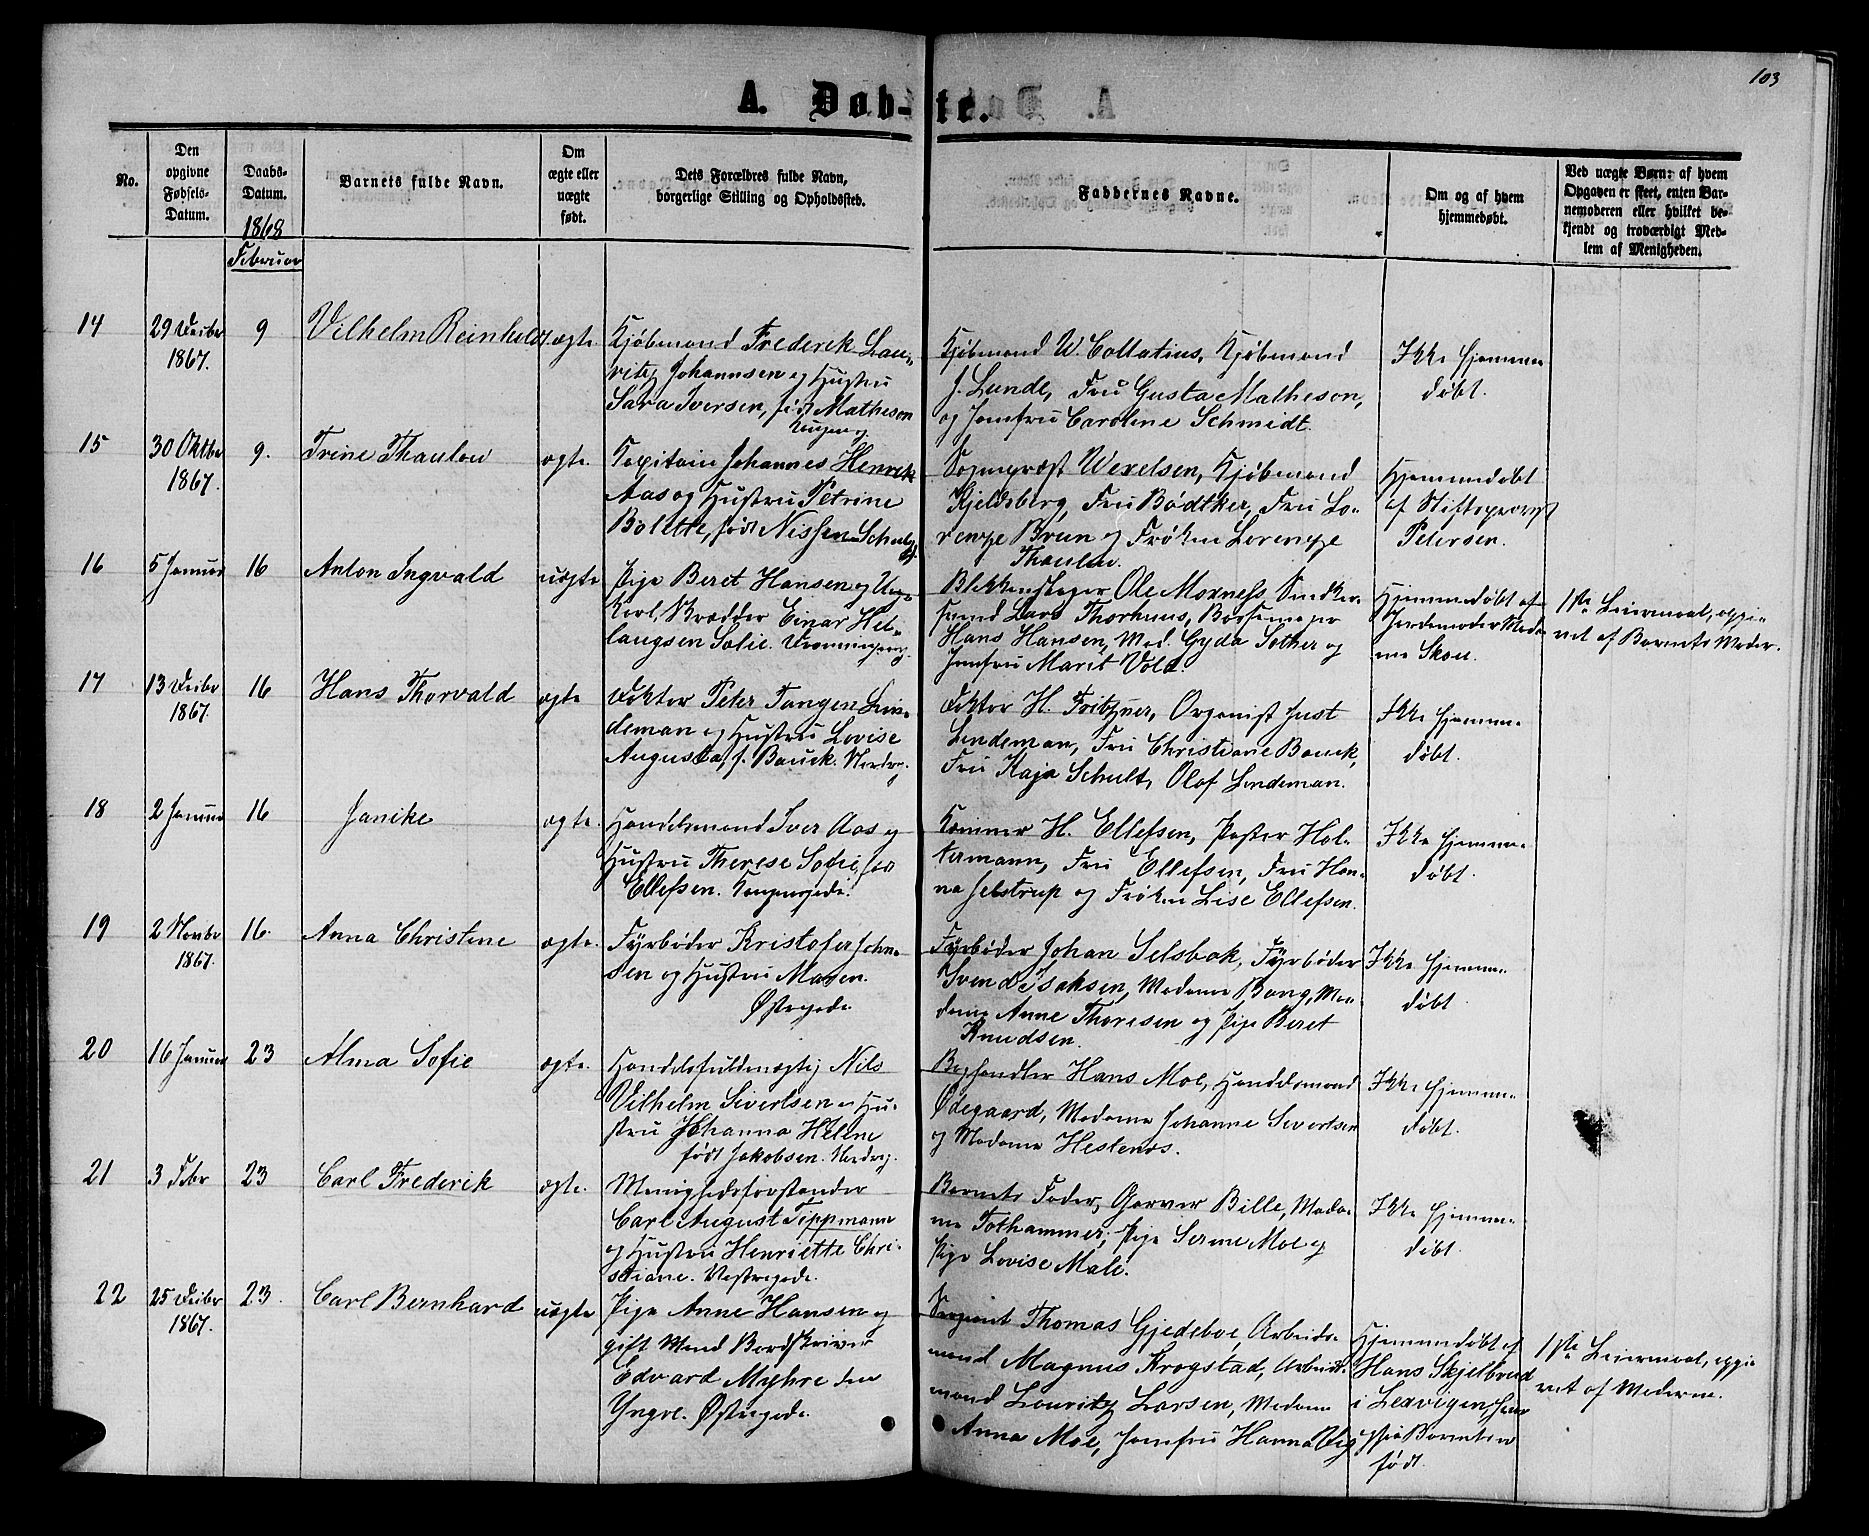 103
A. Døb-te.
No.
Den opgivne Fødsels-Datum.
Daabs-Datum.
Barnets fulde Navn.
Om ægte eller uægte født.
Dets Forældres fulde Navn, borgerlige Stilling og Opholdssted.
Faddernes Navne.
Om og af hvem hjemmedøbt.
Ved uægte Børn: af hvem Opgaven er skeet, enten Barnemoderen eller hvilket bekjendt og troværdigt Medlem af Menigheden.
1868
Februar
14
29 Decbr
1867.
9
Vilhelm Reinholdt
ægte
Kjøbmand Frederik Lau-
ritz Johannsen og Hustru
Sara Iversen, født Matheson
Kjøbmand W. Collatius, Kjøbmand
J. Lunde, Fru Gusta Matheson,
og Jomfru Caroline Schmidt.
Ikke hjemme-
døbt.
15
30 Oktbr
1867.
9.
Trine Thaulow
ægte.
Kapitain Johannes Henrik
Aas og Hustru Petrine
Bolette, født Nissen
Sognepræst Wexelsen, Kjøbmand
Kjeldsberg, Fru Bødtker, Fru Lo-
rentze Brun og Frøken Lorentze
Thaulow.
Hjemmedøbt
af Stiftsprovst
Petersen.
16
5 Januar
16
Anton Ingvald
uægte
Pige Beret Hansen og Ung-
karl, Snedker Einar Hel-
laugsen Solie. Dronningensg.
Blikkenslager Ole Moxness, Snedker-
svend Lars Thorhuus,
Hans Hansen, Mad. Gyda Sother og
Jomfru Marit Vold.
Hjemmedøbt af
Jordemoder Mada-
me Skou.
1ste Leiermaal, opgi-
vet af Barnets Moder.
17
13 Decbr
1867.
16
Hans Thorvald
ægte
Doktor Peter Tangen Lin-
deman og Hustru Lovise
Augusta, f. Bauck. Nordreg.
Doktor H. Fritzner, Organist Just
Lindeman, Fru Christiane Bauck,
Fru Kaja Schult, Olaf Lindeman.
Ikke hjemme-
døbt.
18
2 Januar
16
Janike
ægte.
Handelsmand Iver Aas og
Hustru Therese Sofie, født
Ellefsen. Kongensgade.
H. Ellefsen, Hol-
termann, Fru Ellefsen, Fru Han-
na Jelstrup og Frøken Lise Ellefsen.
Ikke hjemme-
døbt.
19
2 Novbr
1867.
16.
Anna Christine
ægte.
Fyrbøder Kristofer John-
sen og Hustru Maren.
Østregade
Fyrbøder Johan Selsbak, Fyrbøder
Svend Isaksen, Madame Bang, Ma-
dame Anne Thoresen og Pige Beret
Knudsen.
Ikke hjemme-
døbt.
20
16 Januar
23
Alma Sofie
ægte.
Handelsfuldmægtig Nils
Vilhelm Sivertsen og Hu-
stru Johanna Helene
født Jakobsen. Nordreg.
Boghandler Hans Moe, Handelsmand
Ødegaard, Madame Johanne Sivertsen
og Madame Hestenæs.
Ikke hjemme-
døbt.
21
3 Febr
23
Carl Frederik
ægte.
Menighedsforstander
Carl August Tippmann
og Hustru Henriette Chri-
stiane. Vestregade.
Barnets Fader, Garver Bille, Mada-
me Tothammer, Pige Serine Moe og
Pige Lovise Male.
Ikke hjemme-
døbt.
22
25 Decbr
1867.
23.
Carl Bernhard
uægte
Pige Anne Hansen og
gift Mand Bordskriver
Edvard Myhre den
Yngre. Østregade.
Sergeant Thomas Gjedeboe, Arbeids-
mand Magnus Krogstad, Arbeids-
mand Lauritz Larsen, Madame
Anna Moe, Jomfru Hanna Vig
Hjemmedøbt af
Hans Skjelbred
i Lexvigen, hvor
ogsaa Barnet er
født.
1ste Leiermaal, opgi-
vet af Moderen.